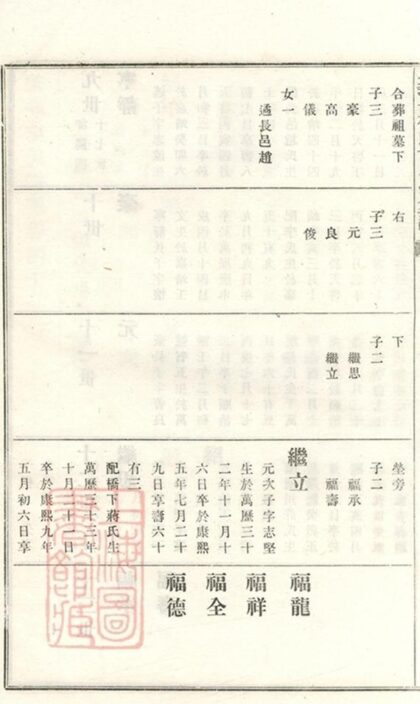 合葬祖墓下
子三
豪
高
儀
女一
適長邑趙
右
子三
元
良
俊
下
子二
繼思
繼立
塋旁
子二
福承
福壽
繼立
元次子字志堅
生於萬歷三十
二年十一月十
六日卒於康熙
五年七月二十
九日享壽六十
有三
配橋下蔣氏生
萬歷三十三年
十月二十二日
卒於康熙九年
五月初六日享
福龍
福祥
福全
福德